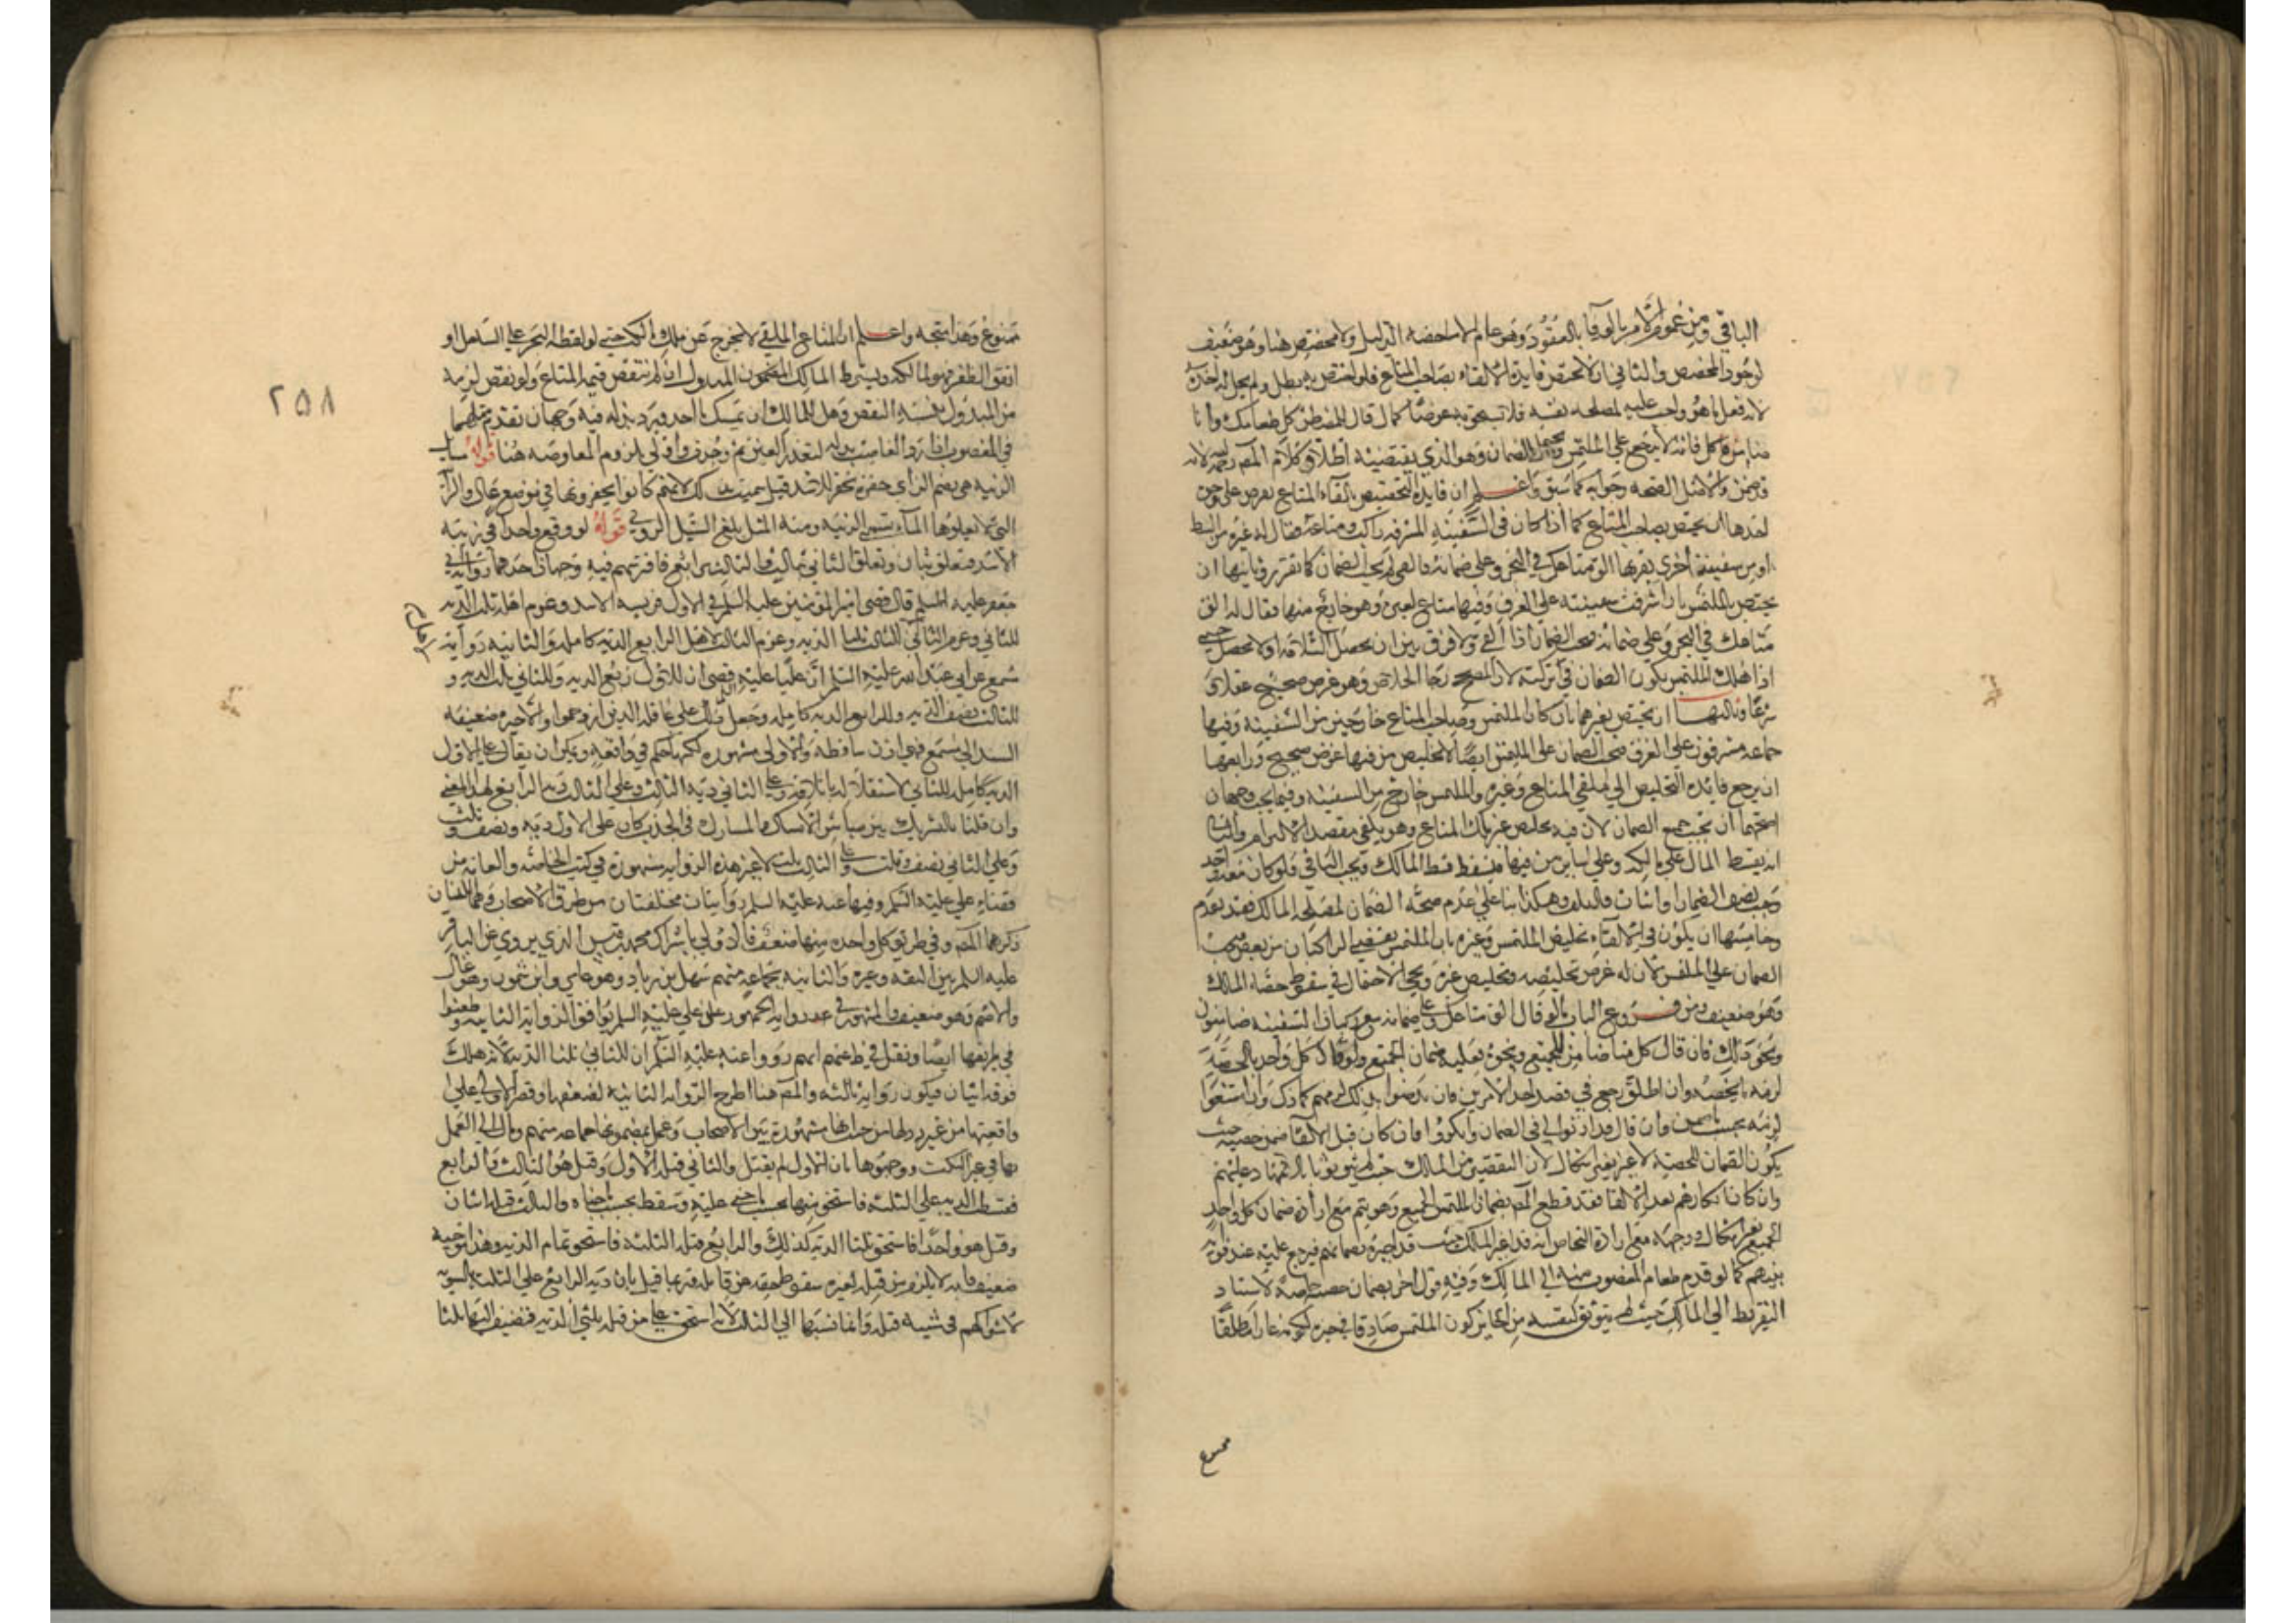 الباقي ومن عموم الأمر بالوفاء بالعقود وهو عام لا مخصصه الدليل ولا مخصص هنا وهو ضعيف
لوجود المخصص والثاني ان لا تختص فايدة الالقاء بصاحب المتاع فلو اختص به بطل ولم يحل له اخذه
لانه فعل ما هو واجب عليه لمصلحة نفسه فلا تستحق به عوضا كما لو قال للمضطر كل طعامك وانا
ضامنه فاكل فانه لا يرجع على الملتمس ويحتمل الضمان وهو الذي يقتضيه اطلاق كلام المصـ رحمه الله لانه
قد ضمن والاصل الصحة وجوابه كما سبق واعلم ان فايدة التخصيص بالقاء المتاع يعرض على وجوه
احدها ان يختص بصاحب المتاع كما اذا كان في السفينة المشرفة راكب ومتاعه فقال له غيره من الشط
او من سفينة اخرى بقربها الق متاعك في البحر وعلي ضمانه فالقى لم يجب الضمان كما تقرر وثانيها ان
يختص بالملتمس بان اشرفت سفينته على الغرق وفيها متاع لغيره وهو خارج منها فقال له الق
متاعك في البحر وعلي ضمانه فيجب الضمان اذا القى ولا فرق بين ان يحصل السلامة اولا تحصل حتى
اذا هلك الملتمس يكون الضمان في تركته لان المصحح رجا الخلاص وهو غرض صحيح عقلا و
شرعا وثالثها ان يختص بغيرهما بان كان الملتمس وصاحب المتاع خارجين من السفينة وفيها
جماعة مشرفون على الغرق فيجب الضمان على الملتمس ايضا لان تخليص من فيها غرض صحيح ورابعها
ان يرجع فائدة التخليص الى ملقي المتاع وغيره والملتمس خارج من السفينة وفيما يجب وجهان
اصحهما ان يجب جميع الضمان لان فيه تخليص غير مالك المتاع وهو يكفي مقصد الالتزام والثاني
انه يقسط المال على مالكه وعلى ساير من فيها فيسقط قسط المالك ويجب الباقي فلو كان معه واحد
وجب نصف الضمان او اثنان فالثلثان وهكذا بناء على عدم صحة الضمان لمصلحة المالك فقد تقدم
وخامسها ان يكون في الالقاء تخليص الملتمس وغيره بان الملتمس بعض الراكبان من بعض فيجب
الضمان على الملتمس لان له غرض تخليصه وتخليص غيره ويجئ الاحتمال في سقوط حصة المالك
وهو ضعيف ومن فروع الباب لو قال الق متاعك وعلي ضمانه مع ركبان السفينة ضامنون
ونحو ذلك فان قال كل منا ضامن للجميع ونحوه فعليه ضمان الجميع ولو قال كل واحد بالحصة
لزمه ما يخصه وان اطلق رجع في قصد احد الامرين فان رضوا بذلك لزمهم كما ذكر وان امتنعوا
لزمه بحسب ما ضمن وان قال قد اذنوا لي في الضمان وانكروا فان كان قبل الالقاء ضمن حصته حيث
يكون الضمان للحصة لا غير بغير اشكال لان التقصير من المالك حيث لم يتوثق بالزامهما دعليهم
وان كان انكارهم بعد الالقاء فقد قطع المصـ بضمان الملتمس الجميع وهو يتم مع ارادة ضمان كل واحد
الجميع بغير اشكال ووجهه مع ارادة التحاص انه قد غر المالك حيث قد اخبره بضمانهم فيرجع عليه عند فوته
بيدهم كما لو قدم طعام المغصوب منه الى المالك وفيه قول اخر بضمان حصته خاصة لاستناد
التفريط الى المالك حيث لم يتوثق لنفسه من الجايز كون الملتمس صادقا في خبره فكونه غارا مطلقا
ممنوع
٢٥٨
ممنوع وهذا متجه واعلم ان المتاع الملقى لا يخرج عن ملك مالكه حتى لو لفظه البحر على الساحل او
اتفق الظفر به فهو لمالكه ويسترد المالك المضمون المبذول ان لم تنتقص قيمة المتاع ولو نقص لزمه
من المبذول بنسبة النقص وهل للمالك ان يمسك ما اخذ ويرد بدله فيه وجهان تقدم مثلهما
في المغصوب اذا رد الغاصب بدله لتعذر العين ثم وجدت واولى بلزوم المعاوضة هنا قوله مسايل
الزبية هي بضم الزاي حفيرة تحفر للاسد قيل سميت بذلك لانهم كانوا يحفرونها في موضع عال والرابية
التي لا يعلوها الماء تسمى الزبية ومنه المثل بلغ السيل الزبى قوله لو وقع واحد في زبية
الاسد فتعلق بثان وتعلق الثاني بثالث والثالث برابع فافترسهم ففيه وجهان احدهما رواية
جعفر عليه السلام قال قضى امير المؤمنين عليه السلم في الاول فريسة الاسد وغرم اهله ثلث الدية
للثاني وغرم الثاني للثالث ثلثا الدية وغرم الثالث لاهل الرابع الدية كاملة والثانية رواية
مسمع عن ابي عبد الله عليه السلم ان عليا عليه السلم قضى ان للاول ربع الدية وللثاني ثلث الدية و
للثالث نصف الدية وللرابع الدية كاملة وجعل ذلك على عاقلة الذين ازدحموا والاخيرة ضعيفة
السند الى مسمع فهي اذن ساقطة والاولى مشهورة لكنها حكم في واقعة ويمكن ان يقال على الاول
الدية كاملة للثاني لاستقلاله باتلافه وعلى الثاني دية الثالث وعلى الثالث دية الرابع لهذا المعنى
وان قلنا بالتشريك بين مباشر الامساك والمشارك في الجذب كان على الاول دية ونصف وثلث
وعلى الثاني نصف وثلث وعلى الثالث ثلث لا غير هذه الرواية مشهورة في كتب الخاصة والعامة من
قضايا علي عليه السلم وفيها عنه عليه السلم روايتان مختلفتان من طرق الاصحاب وهما اللتان
ذكرهما المصـ وفي طريق كل واحدة منهما ضعف فالاولى باشتراك محمد بن قيس الذي يروي عن الباقر
عليه السلم بين الثقة وغيره والثانية بجماعة منهم سهل بن زياد وهو عامي وابن شمون وهو غال
والاصم وهو ضعيف والمشهور في عدد رواية الجمهور عن علي عليه السلم توافق الرواية الثانية وطعنوا
في طريقها ايضا ونقل في طعنهم انهم رووا عنه عليه السلم ان للثاني ثلثا الدية لانه هلك
فوقه اثنان فيكون رواية ثالثة والمصـ هنا اطرح الرواية الثانية لضعفها وقصر الاولى على
واقعتها من غير رد لها من حيث انها مشهورة بين الاصحاب وعمل بمضمونها جماعة منهم ومال الى العمل
بها في غير النكت ووجهوها بان الاول لم يقتل والثاني قتله الاول وقتل هو الثالث والرابع
فقسطت الدية على الثلثة فاستحق منها بحسب ما جني عليه وسقط بحسب ما جناه والثالث قتله اثنان
وقتل هو واحدا فاستحق ثلثا الدية كذلك والرابع قتله الثلثة فاستحق تمام الدية وهذا التوجيه
ضعيف فانه لا يلزم من قتله لغيره سقوط حقه عن قاتله وربما قيل بان دية الرابع على الثلثة بالسوية
لاشتراكهم في سببية قتله وانما نسبها الى الثالث لانه استحق على من قتله بثلثي الدية فتضيف اليها ثلثا